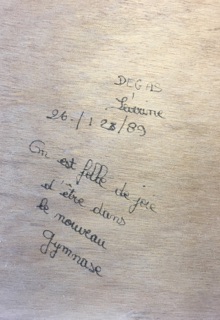 DEGAS
Séverine
26/12/89
On est folle de joie
d'être dans
le nouveau
gymnase